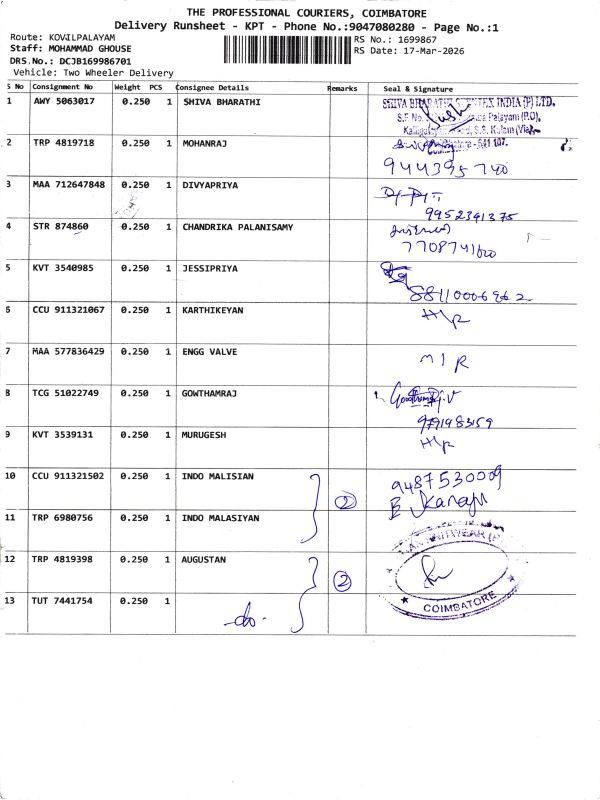 THE PROFESSIONAL COURIERS, COIMBATORE
Delivery Runsheet - KPT - Phone No.:9047080280 - Page No.:1
Route: KOVILPALAYAM
RS No.: 1699867
Staff: MOHAMMAD GHOUSE
RS Date: 17-Mar-2026
DRS.No.: DCJB169986701
Vehicle: Two Wheeler Delivery
S No Consignment No Weight PCS Consignee Details Remarks Seal & Signature
1 AWY 5063017 0.250 1 SHIVA BHARATHI
SHIVA BHARATHI INDIA (P) LTD.
S.F. No. Palayam (P.O),
S.S. Kulam (Via),
641 107.
2 TRP 4819718 0.250 1 MOHANRAJ
944395740
3 MAA 712647848 0.250 1 DIVYAPRIYA
9952341375
4 STR 874860 0.250 1 CHANDRIKA PALANISAMY
5 KVT 3540985 0.250 1 JESSIPRIYA
6 CCU 911321067 0.250 1 KARTHIKEYAN
H/R
7 MAA 577836429 0.250 1 ENGG VALVE
M I R
8 TCG 51022749 0.250 1 GOWTHAMRAJ
9 KVT 3539131 0.250 1 MURUGESH
H/R
10 CCU 911321502 0.250 1 INDO MALISIAN
2
9487530009
11 TRP 6980756 0.250 1 INDO MALASIYAN
12 TRP 4819398 0.250 1 AUGUSTAN
2
13 TUT 7441754 0.250 1
-do-
COIMBATORE